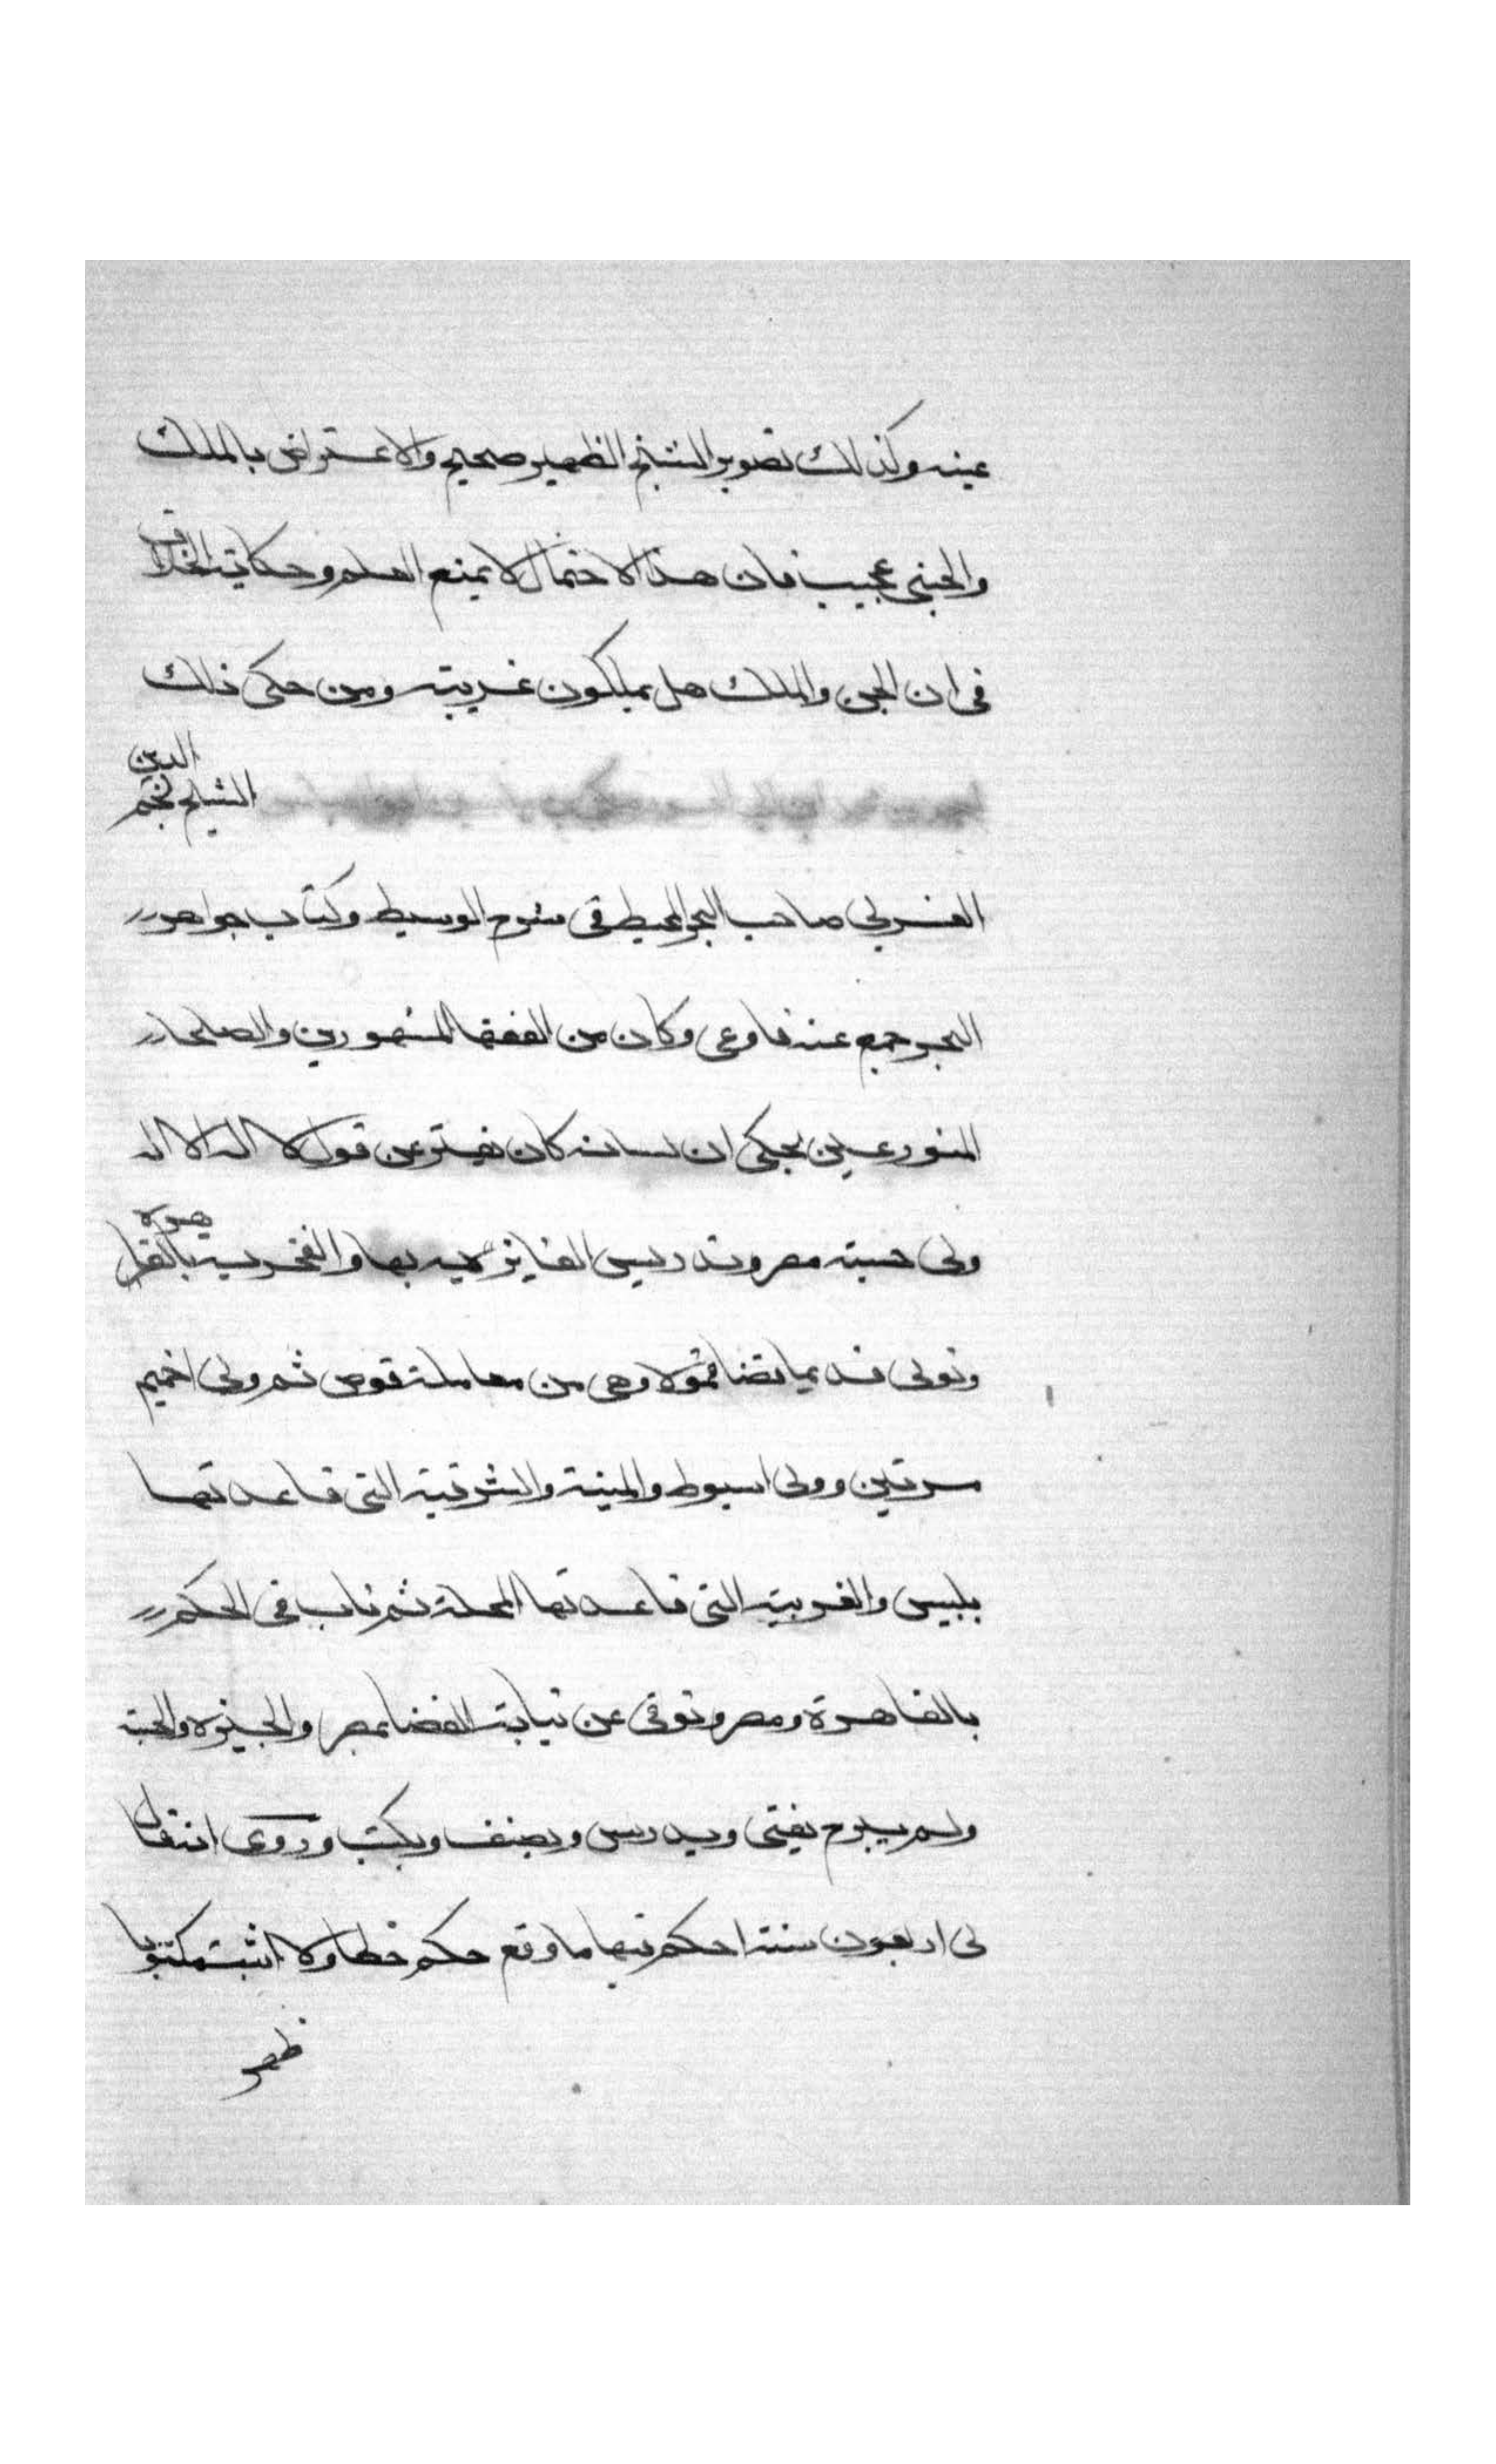 عينه وكذلك تصوير الشيخ الظهير صحيح والاعتراض بالملك
والجني عجيب فان هذا الاحتمال لا يمنع العلم وحكايته الخلاف
في ان الجن والملك هل يملكون غريبة ومن حكى ذلك
الشيخ نجم الدين
صاحب البحر المحيط في شرح الوسيط وكتاب جواهر
البحر جمع عنه فاوعى وكان من الفقها المشهورين والصلحا
المتورعين يحكى ان لسانه كان يفتر عن قول لا اله الا الله
ولى حسبة مصر وتدريس الفايزية بها والفخرية بالقاهرة
وتولى قديما قضا قمولا وهي من معاملة قوص ثم ولى اخميم
مرتين وولى اسيوط والمنية والشرقية التي قاعدتها
بلبيس والغربية التي قاعدتها المحلة ثم ناب في الحكم
بالقاهرة ومصر وتوفى عن نيابة القضا بمصر والجيزة والحسبة
ولم يبرح يفتي ويدرس ويصنف ويكتب وروى انه قال
لى اربعون سنة احكم فيها ما وقع حكم خطا ولا اثبت مكتوبا
ظهر